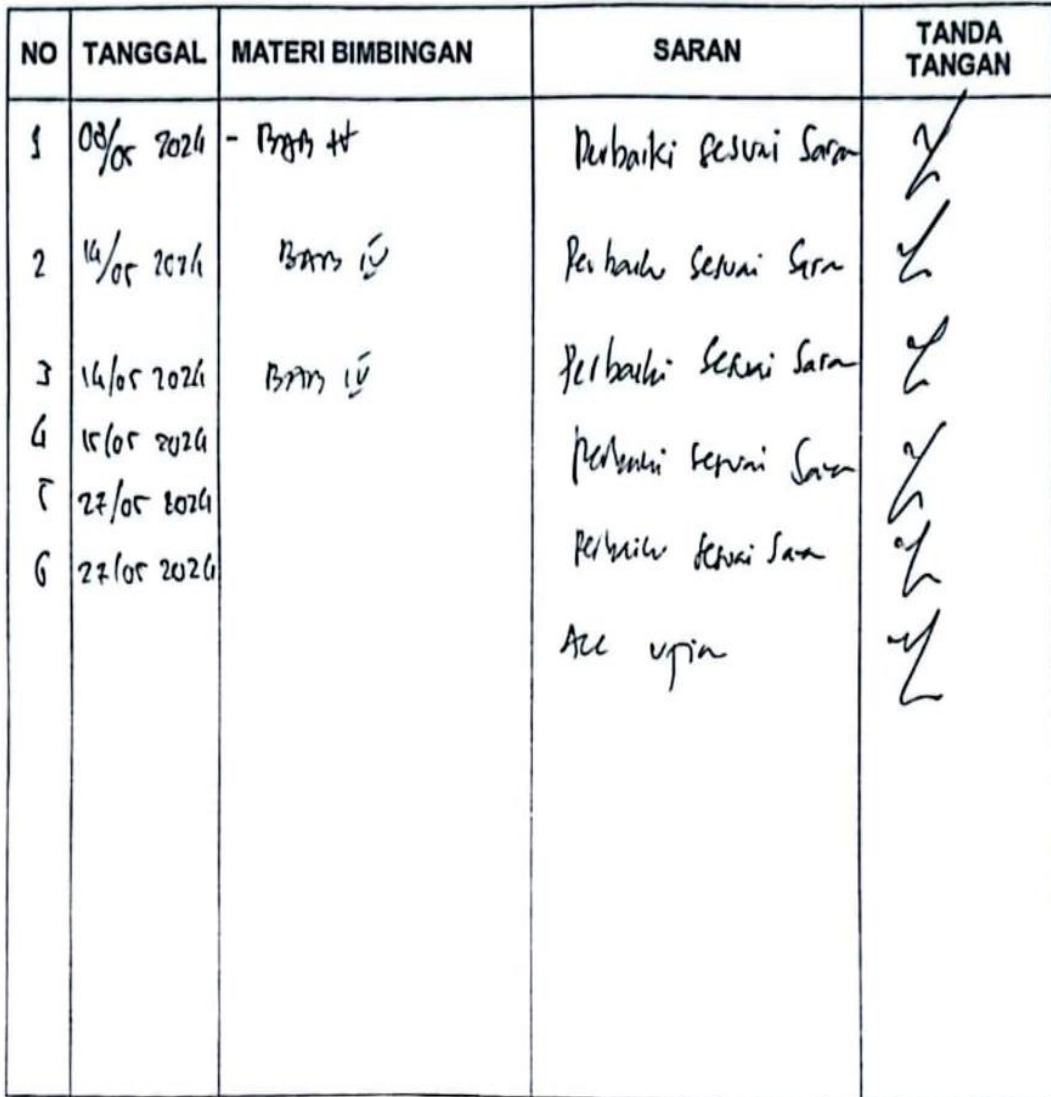 NO TANGGAL MATERI BIMBINGAN SARAN TANDA TANGAN
1 08/05 2024 - BAB Perbaiki sesuai Saran
2 14/05 2024 BAB IV Perbaiki Sesuai Saran
3 14/05 2024 BAB IV Perbaiki Sesuai Saran
4 15/05 2024 Perbaiki sesuai Saran
5 27/05 2024
6 27/05 2024 Perbaiki sesuai Saran
Acc ujian